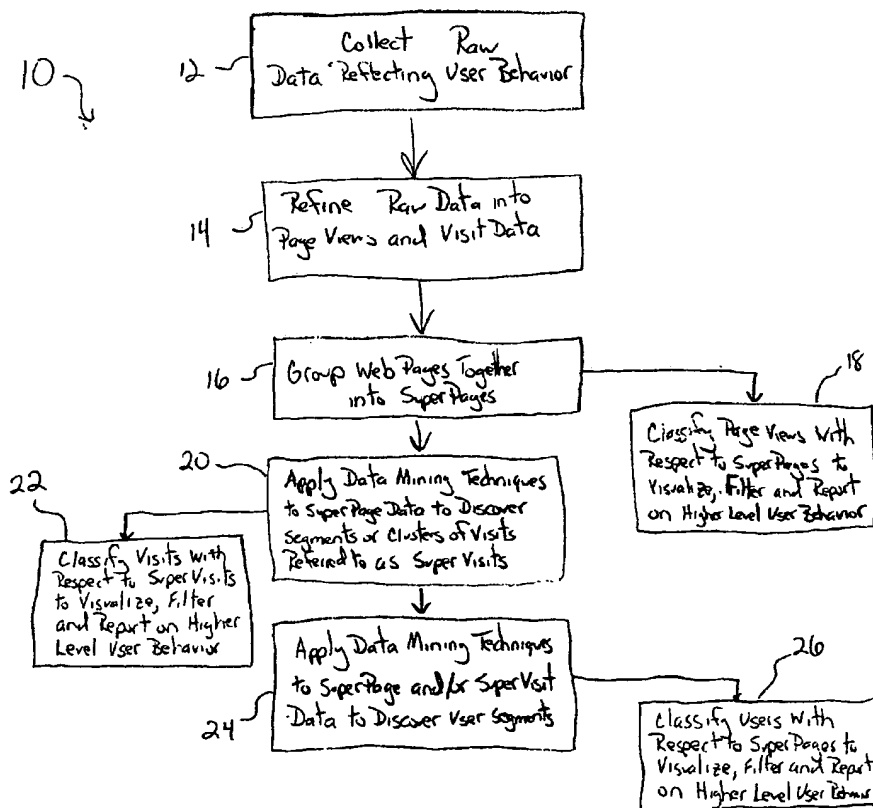 10
12
Collect Raw
Data Reflecting User Behavior
14
Refine Raw Data into
Page Views and Visit Data
16
Group Web Pages Together
into SuperPages
18
Classify Page Views With
Respect to SuperPages to
Visualize, Filter and Report
on Higher Level User Behavior
20
Apply Data Mining Techniques
to SuperPage Data to Discover
Segments or Clusters of Visits
Referred to as Super Visits
22
Classify Visits With
Respect to Super Visits
to Visualize, Filter
and Report on Higher
Level User Behavior
24
Apply Data Mining Techniques
to SuperPage and/or SuperVisit
Data to Discover User Segments
26
Classify Users With
Respect to SuperPages to
Visualize, Filter and Report
on Higher Level User Behavior